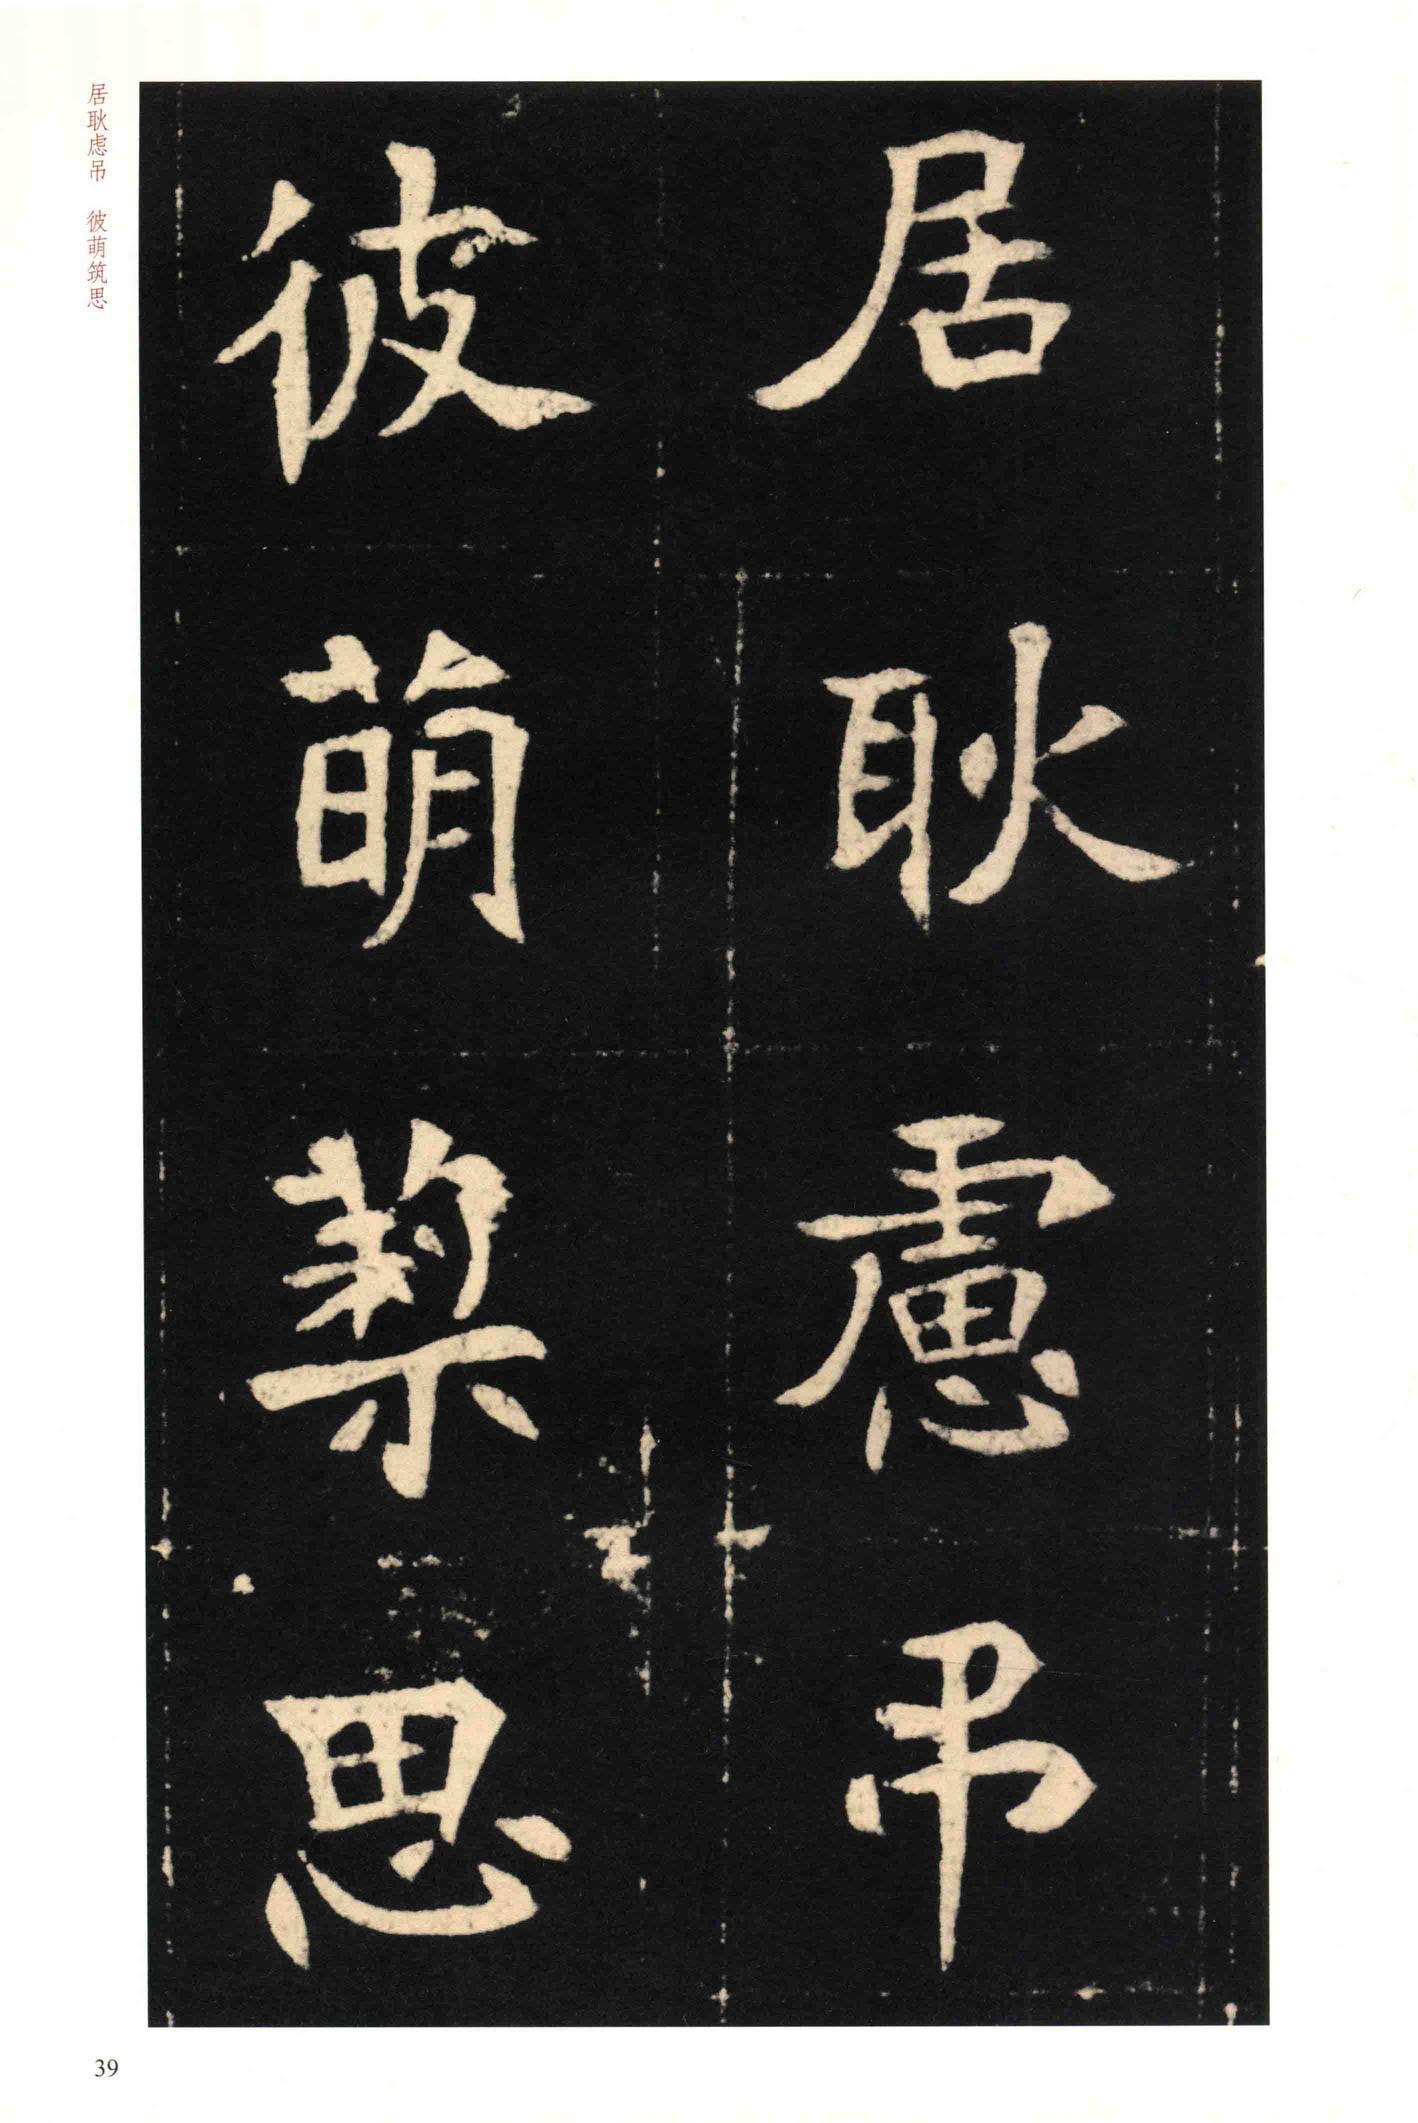 居耿慮吊
彼萌築思
居耿虑吊　彼萌筑思
39